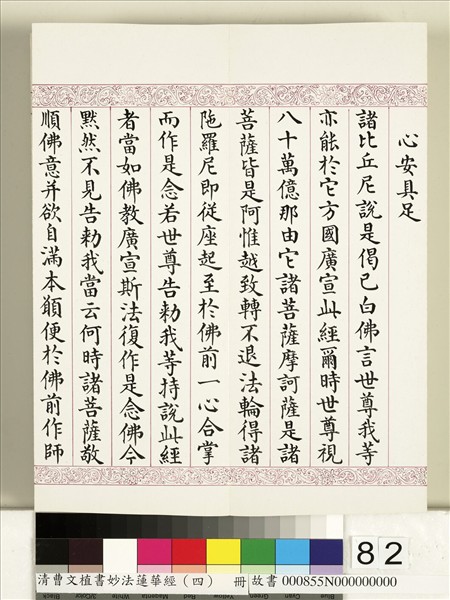 心安具足
諸比丘尼說是偈已白佛言世尊我等
亦能於它方國廣宣此經爾時世尊視
八十萬億那由它諸菩薩摩訶薩是諸
菩薩皆是阿惟越致轉不退法輪得諸
陁羅尼即從座起至於佛前一心合掌
而作是念若世尊告勑我等持說此經
者當如佛教廣宣斯法復作是念佛今
默然不見告勑我當云何時諸菩薩敬
順佛意并欲自滿本願便於佛前作師
82
清曹文植書妙法蓮華經(四) 冊 故書 000855N000000000
Black 3/Color White Magenta Red Yellow Green Cyan Blue